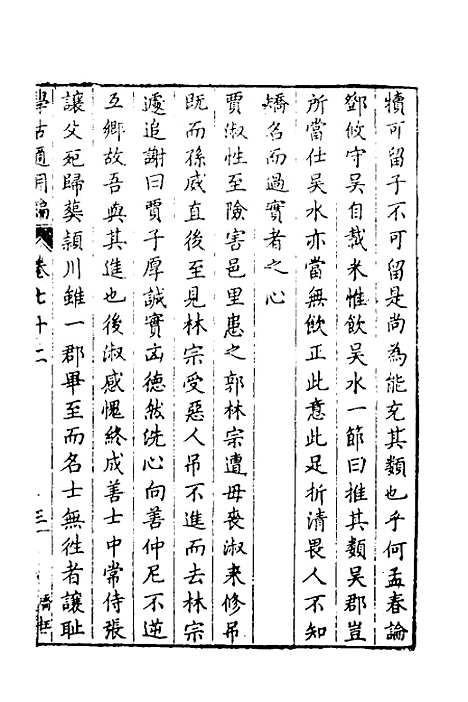 犢可留子不可留是尚為能充其類也乎何孟春論
鄧攸守吳自載米惟飲吳水一節曰推其類吳郡豈
所當仕吳水亦當無飲正此意此足折清畏人不知
矯名而過實者之心
賈淑性至險害邑里患之郭林宗遭母喪淑来修吊
既而孫威直後至見林宗受惡人吊不進而去林宗
遽追謝曰賈子厚誠實凶德然洗心向善仲尼不逆
互鄉故吾與其進也後淑感愧終成善士中常侍張
讓父死歸葬潁川雖一郡畢至而名士無徃者讓耻
學古適用編
卷七十二
三